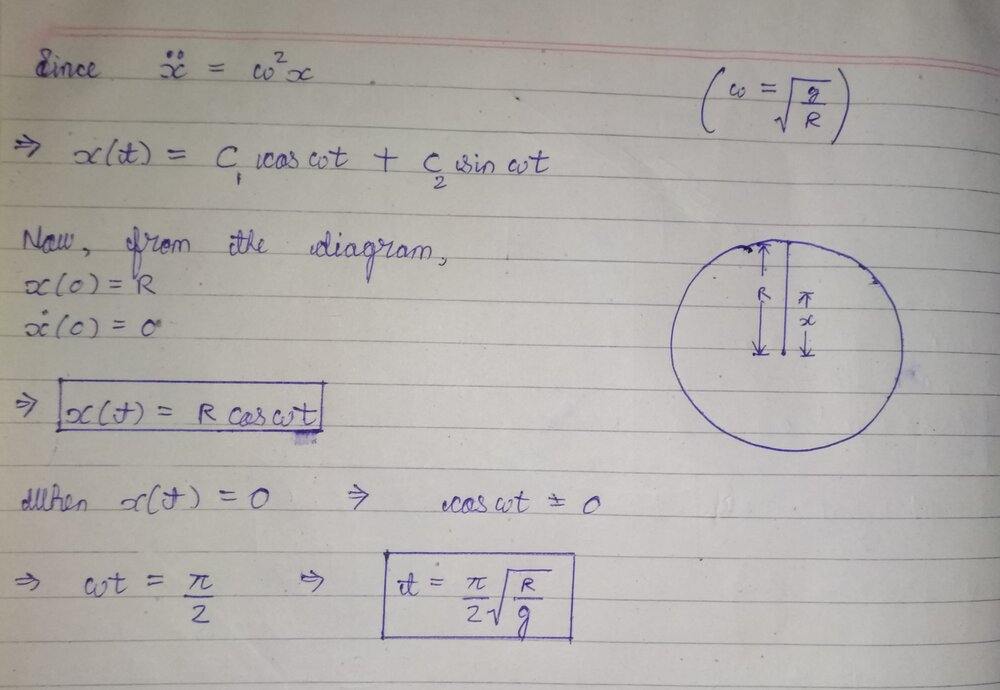 Since ẍ = ω²x (ω = √(g/R))
⇒ x(t) = C₁ cos ωt + C₂ sin ωt
Now, from the diagram,
x(0) = R
ẋ(0) = 0
R x
⇒ x(t) = R cos ωt
When x(t) = 0 ⇒ cos ωt = 0
⇒ ωt = π/2 ⇒ t = π/2 √(R/g)